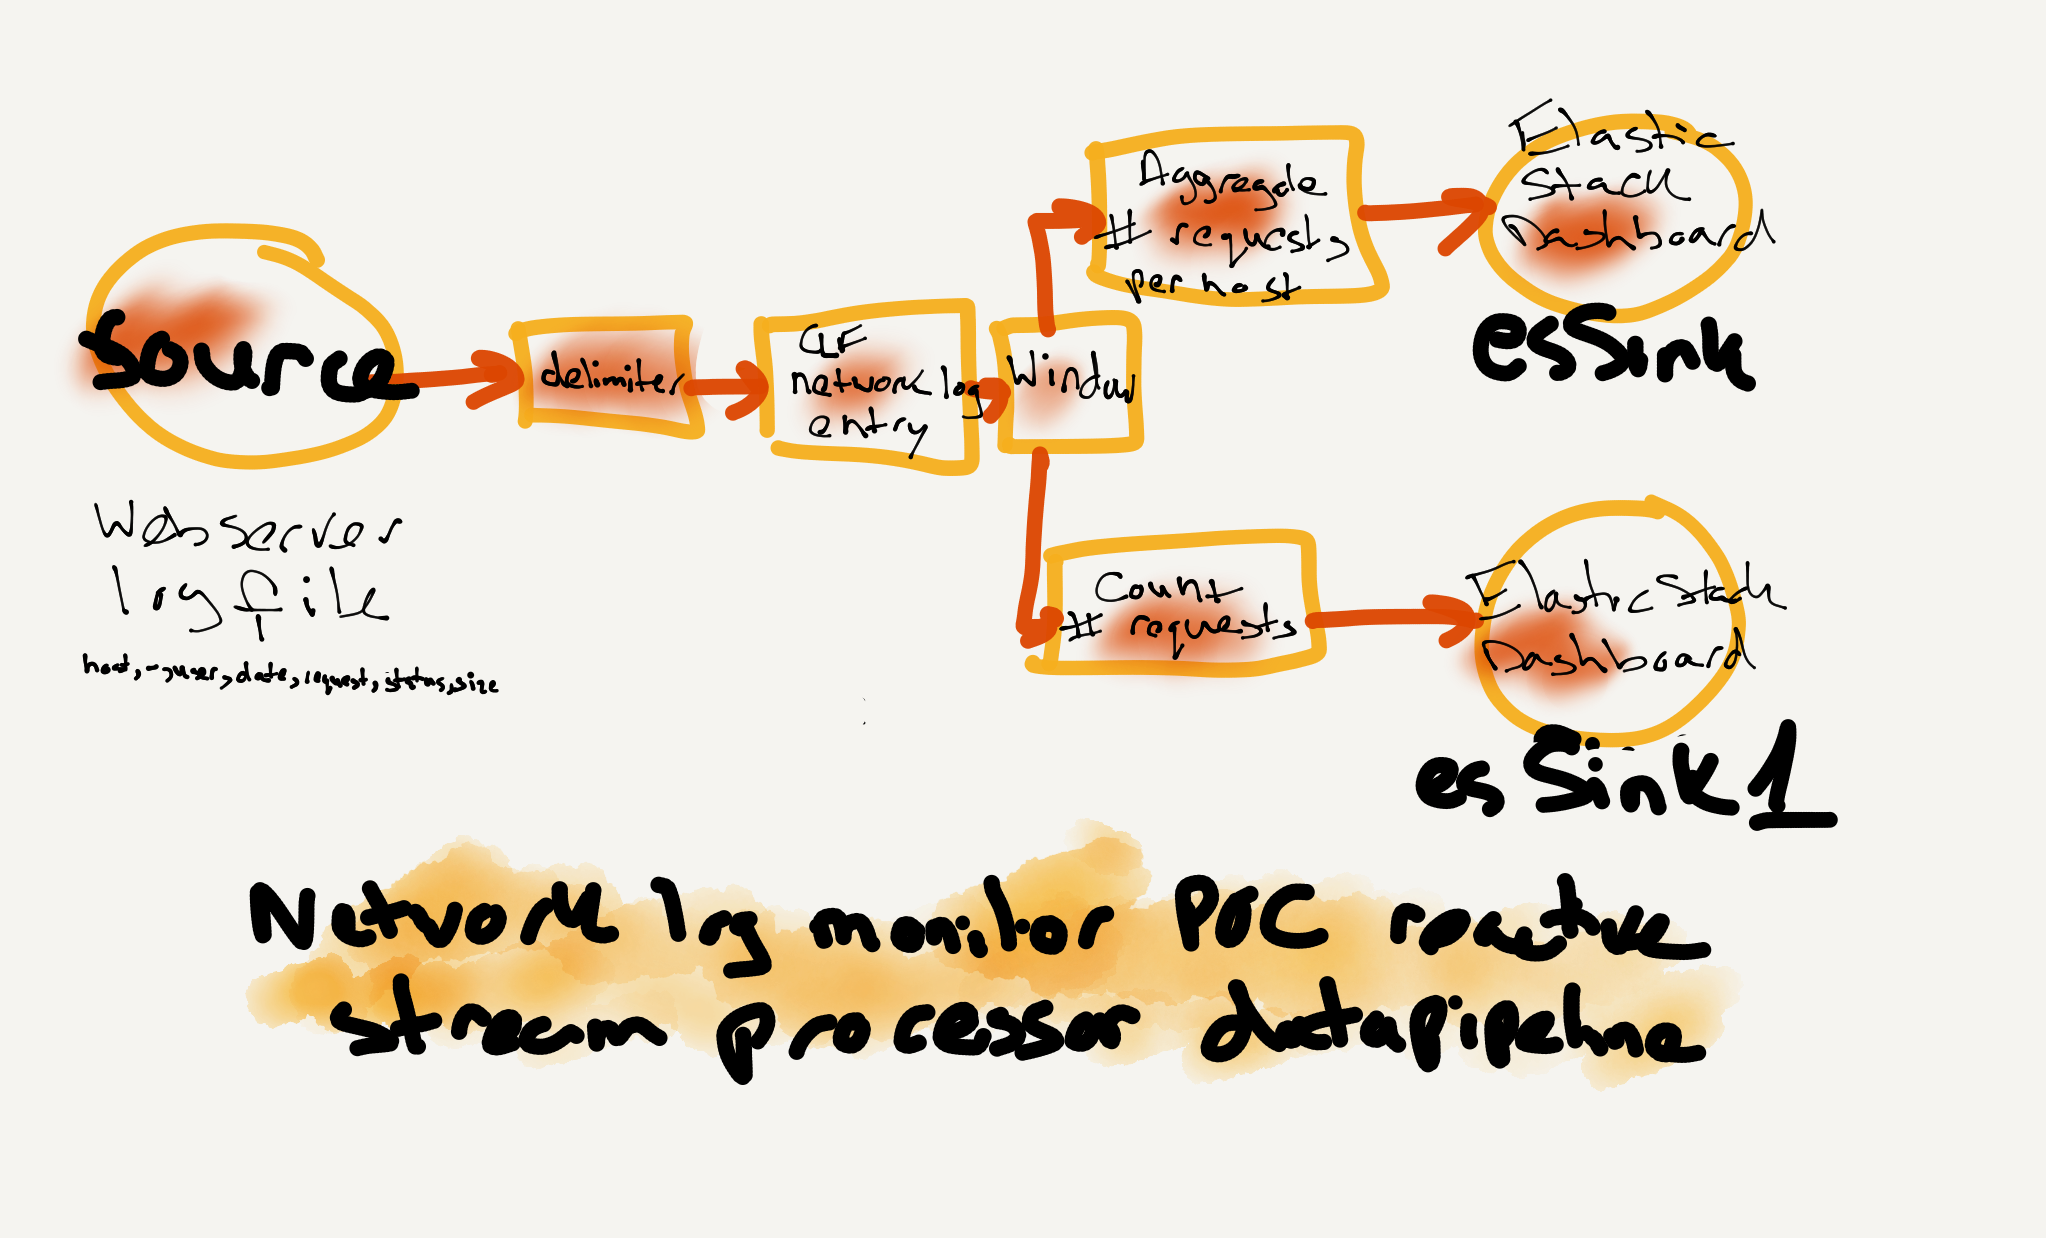 Source
Webserver
log file
host, -, user, date, request, status, size
delimiter
CLF
network log
entry
Window
Aggregate
# requests
per host
Elastic
Stack
Dashboard
esSink
Count
# requests
Elastic Stack
Dashboard
esSink1
Network log monitor POC reactive
stream processor datapipeline